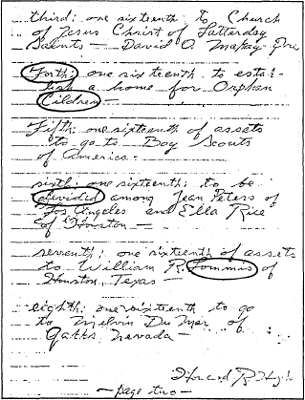 third: one sixteenth to Church
of Jesus Christ of Latterday
Saints – David O. Makay – Pre
Forth: one sixteenth to estab-
lish a home for Orphan
Cildren –
Fifth: one sixteenth of assets
to go to Boy Scouts
of America.
sixth: one sixteenth; to be
devided among Jean Peters of
Los Angeles and Ella Rice
of Houston –
seventh: one sixteenth of assets
to William R. Lommis of
Houston, Texas –
eighth: one sixteenth to go
to Melvin DuMar of
Gabbs Nevada –
Howard R. Hugh
– page two –